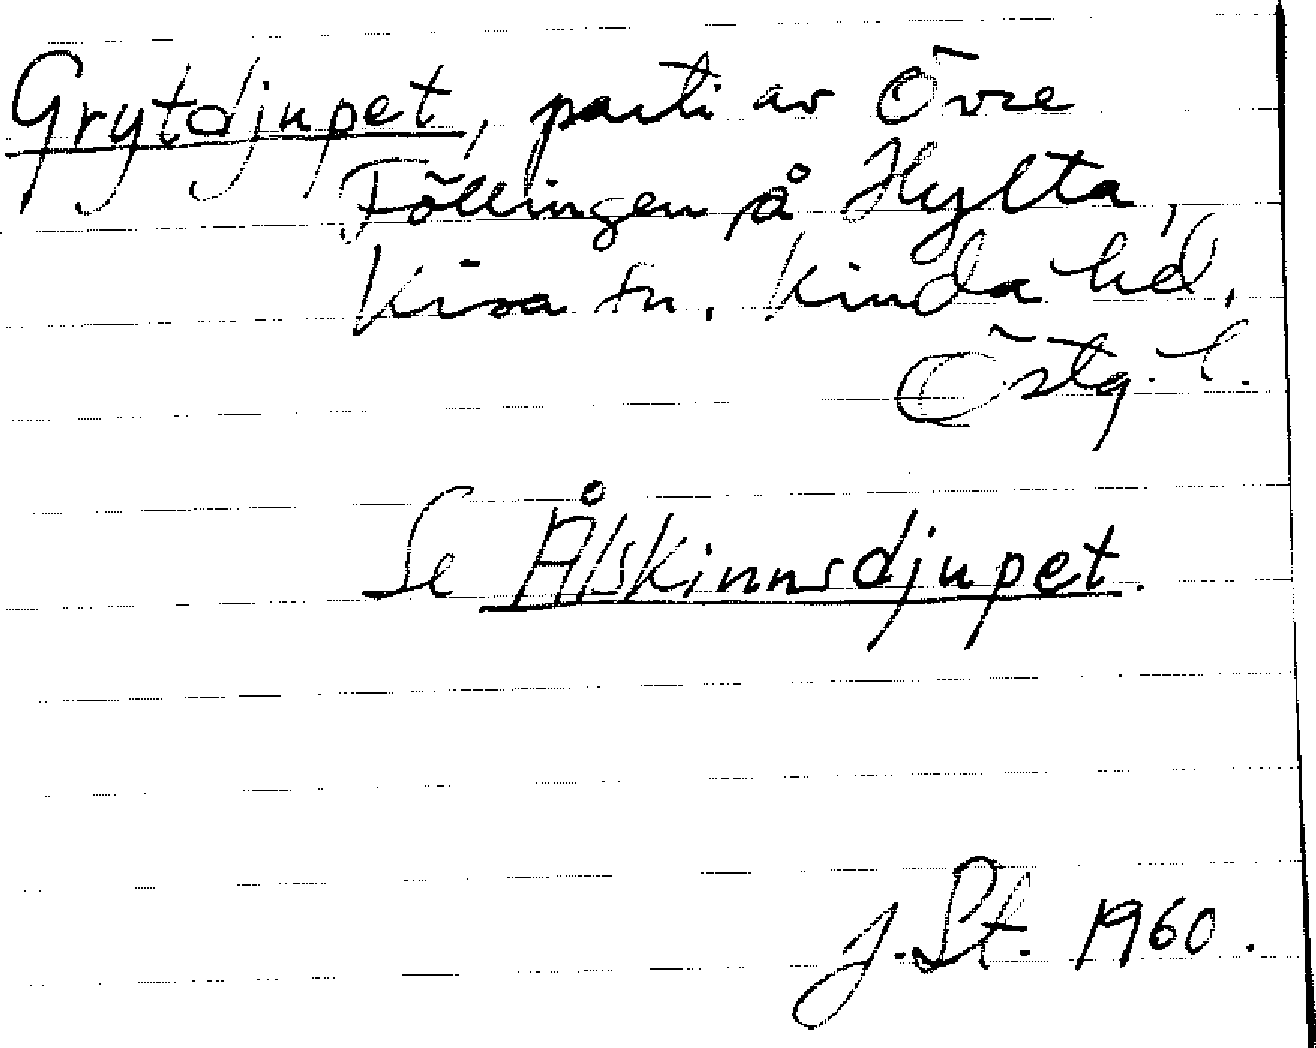 Grytdjupet, parti av Övre
Föllingen på Hylta,
Kisa sn. Kinda hd.
Östg. l.
Se Ålskinnsdjupet.
J. St. 1960.